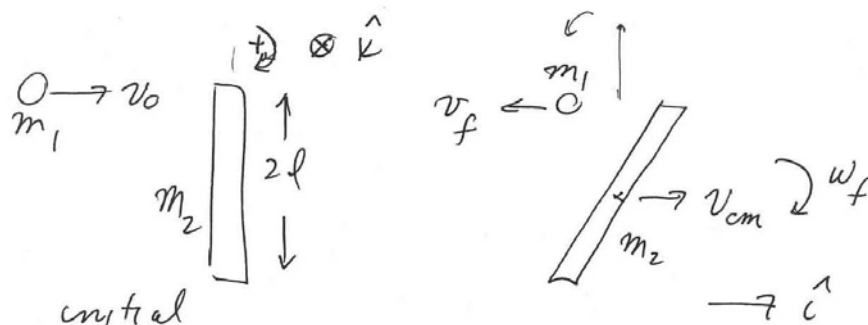 + ⊗ k̂
m₁ v₀
m₂ 2l
initial
m₁
v_f
v_cm ω_f
m₂
î